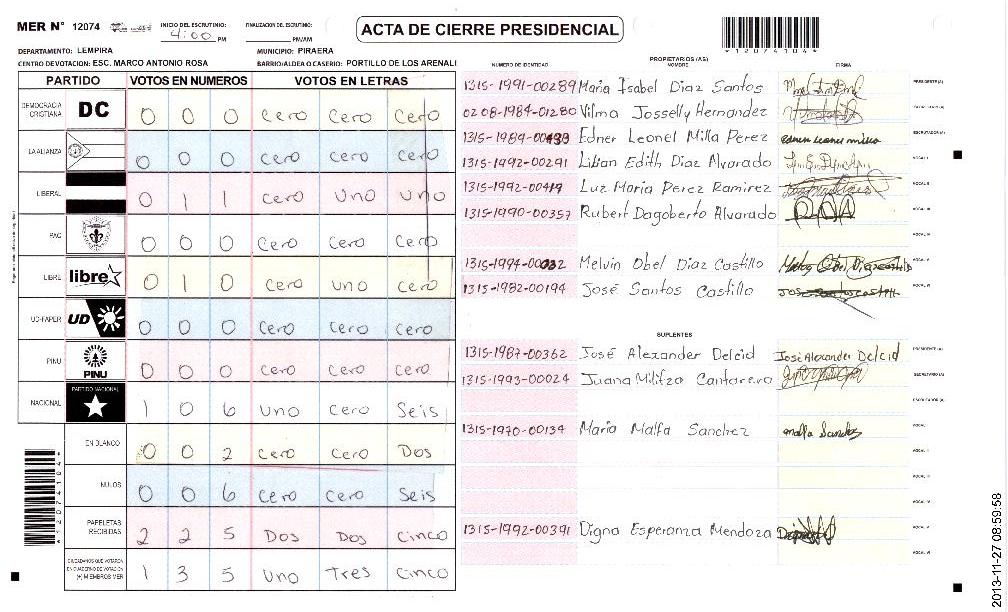 MER N° 12074
INICIO DEL ESCRUTINIO: 4:00 PM
FINALIZACION DEL ESCRUTINIO: PM/AM
ACTA DE CIERRE PRESIDENCIAL
*12074104*
DEPARTAMENTO: LEMPIRA
MUNICIPIO: PIRAERA
CENTRO DE VOTACION: ESC. MARCO ANTONIO ROSA
BARRIO/ALDEA O CASERIO: PORTILLO DE LOS ARENALI
PARTIDO VOTOS EN NUMEROS VOTOS EN LETRAS
DEMOCRACIA CRISTIANA DC 0 0 0 Cero Cero Cero
LA ALIANZA 0 0 0 Cero Cero Cero
LIBERAL 0 1 1 Cero Uno Uno
PAC 0 0 0 Cero Cero Cero
LIBRE libre 0 1 0 Cero Uno Cero
UD-FAPER UD 0 0 0 Cero Cero Cero
PINU PINU 0 0 0 Cero Cero Cero
NACIONAL PARTIDO NACIONAL 1 0 6 Uno Cero Seis
EN BLANCO 0 0 2 Cero Cero Dos
NULOS 0 0 6 Cero Cero Seis
PAPELETAS RECIBIDAS 2 2 5 Dos Dos Cinco
CIUDADANOS QUE VOTARON EN CUADERNO DE VOTACION (+) MIEMBROS MER 1 3 5 Uno Tres Cinco
*12074104*
PROPIETARIOS (AS)
NUMERO DE IDENTIDAD NOMBRE FIRMA
1315-1991-00289 Maria Isabel Diaz Santos PRESIDENTE(A)
0208-1984-01280 Vilma Josselly Hernandez SECRETARIO(A)
1315-1989-00439 Edner Leonel Milla Perez edner leonel milla ESCRUTADOR(A)
1315-1992-00291 Lilian Edith Diaz Alvarado VOCAL I
1315-1992-00419 Luz Maria Perez Ramirez VOCAL II
1315-1990-00357 Rubert Dagoberto Alvarado VOCAL III
VOCAL IV
1315-1994-00032 Melvin Obel Diaz Castillo VOCAL V
1315-1982-00194 José Santos Castillo VOCAL VI
SUPLENTES
1315-1987-00362 José Alexander Delcid José Alexander Delcid PRESIDENTE(A)
1315-1993-00024 Juana Militza Cantarero SECRETARIO(A)
ESCRUTADOR(A)
1315-1970-00134 Maria Malfa Sanchez VOCAL I
VOCAL II
VOCAL III
VOCAL IV
1315-1992-00391 Digna Esperanza Mendoza VOCAL V
VOCAL VI
2013-11-27 08:59:58